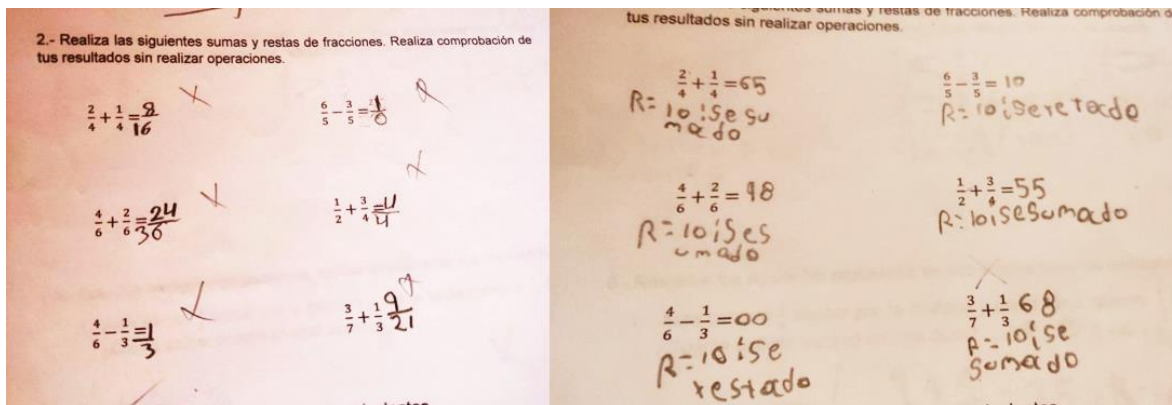 2.- Realiza las siguientes sumas y restas de fracciones. Realiza comprobación de
tus resultados sin realizar operaciones.
2/4 + 1/4 = 8/16
6/5 - 3/5 = 1/0
4/6 + 2/6 = 24/36
1/2 + 3/4 = 4/4
4/6 - 1/3 = 1/3
3/7 + 1/3 9/21
sumas y restas de fracciones. Realiza comprobación d
tus resultados sin realizar operaciones.
2/4 + 1/4 = 65
R= 10 ise su
mado
6/5 - 3/5 = 10
R= 10 iseretado
4/6 + 2/6 = 98
R= 10 ises
umado
1/2 + 3/4 = 55
R= 10isesumado
4/6 - 1/3 = 00
R= 10 ise
restado
3/7 + 1/3 68
R= 10ise
sumado